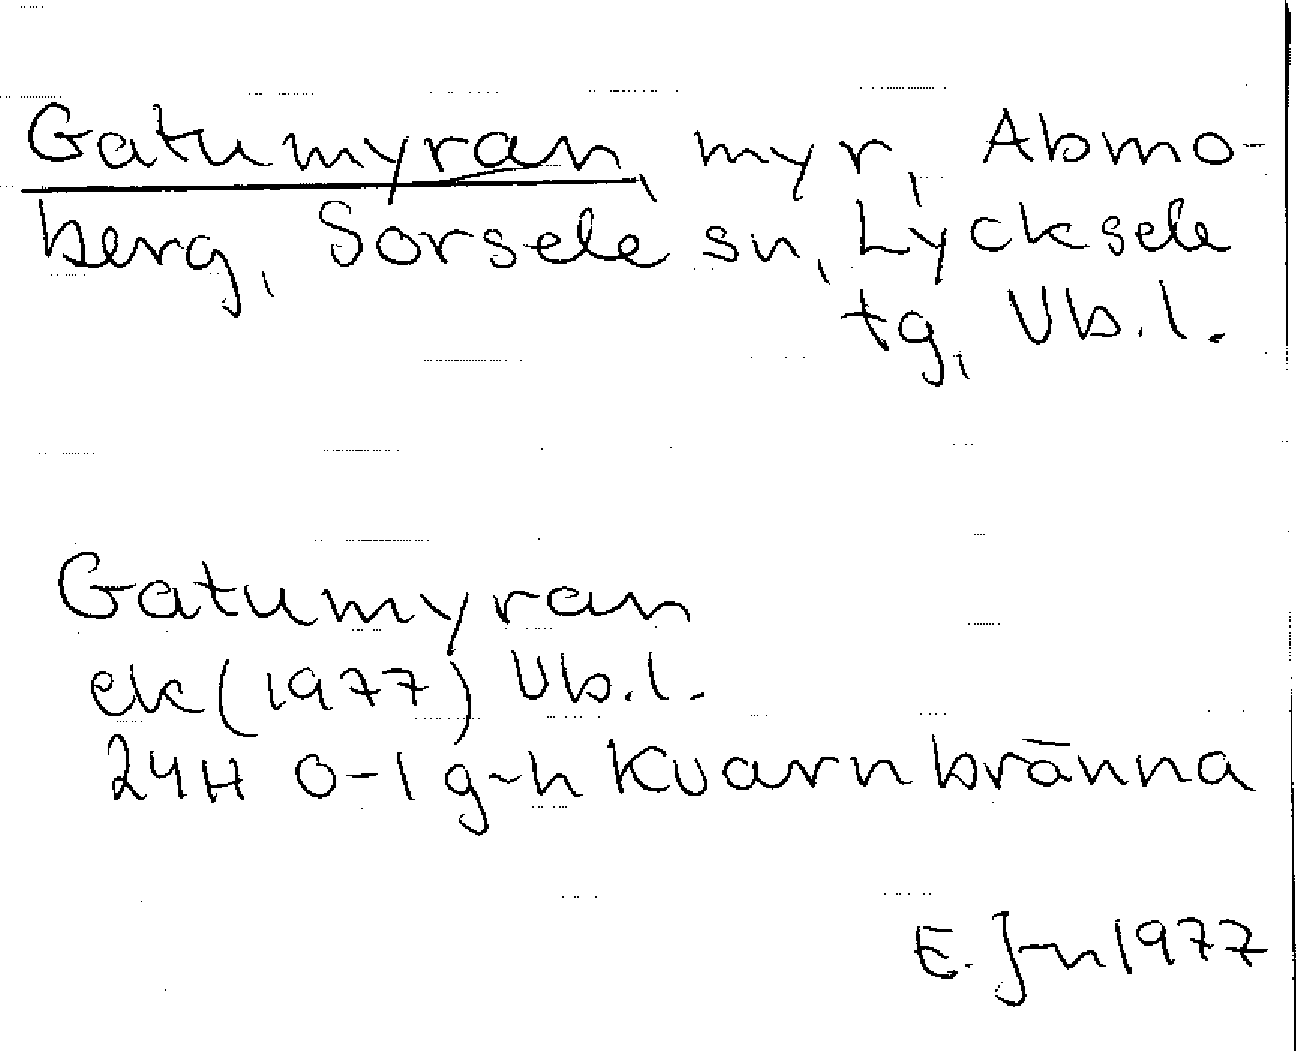 Gatumyran, myr, Abmo-
berg, Sorsele sn, Lycksele
tg, Vb.l.
Gatumyran
ek (1977) Vb.l.
24H 0-1 g-h Kvarnbränna
E. J-n 1977